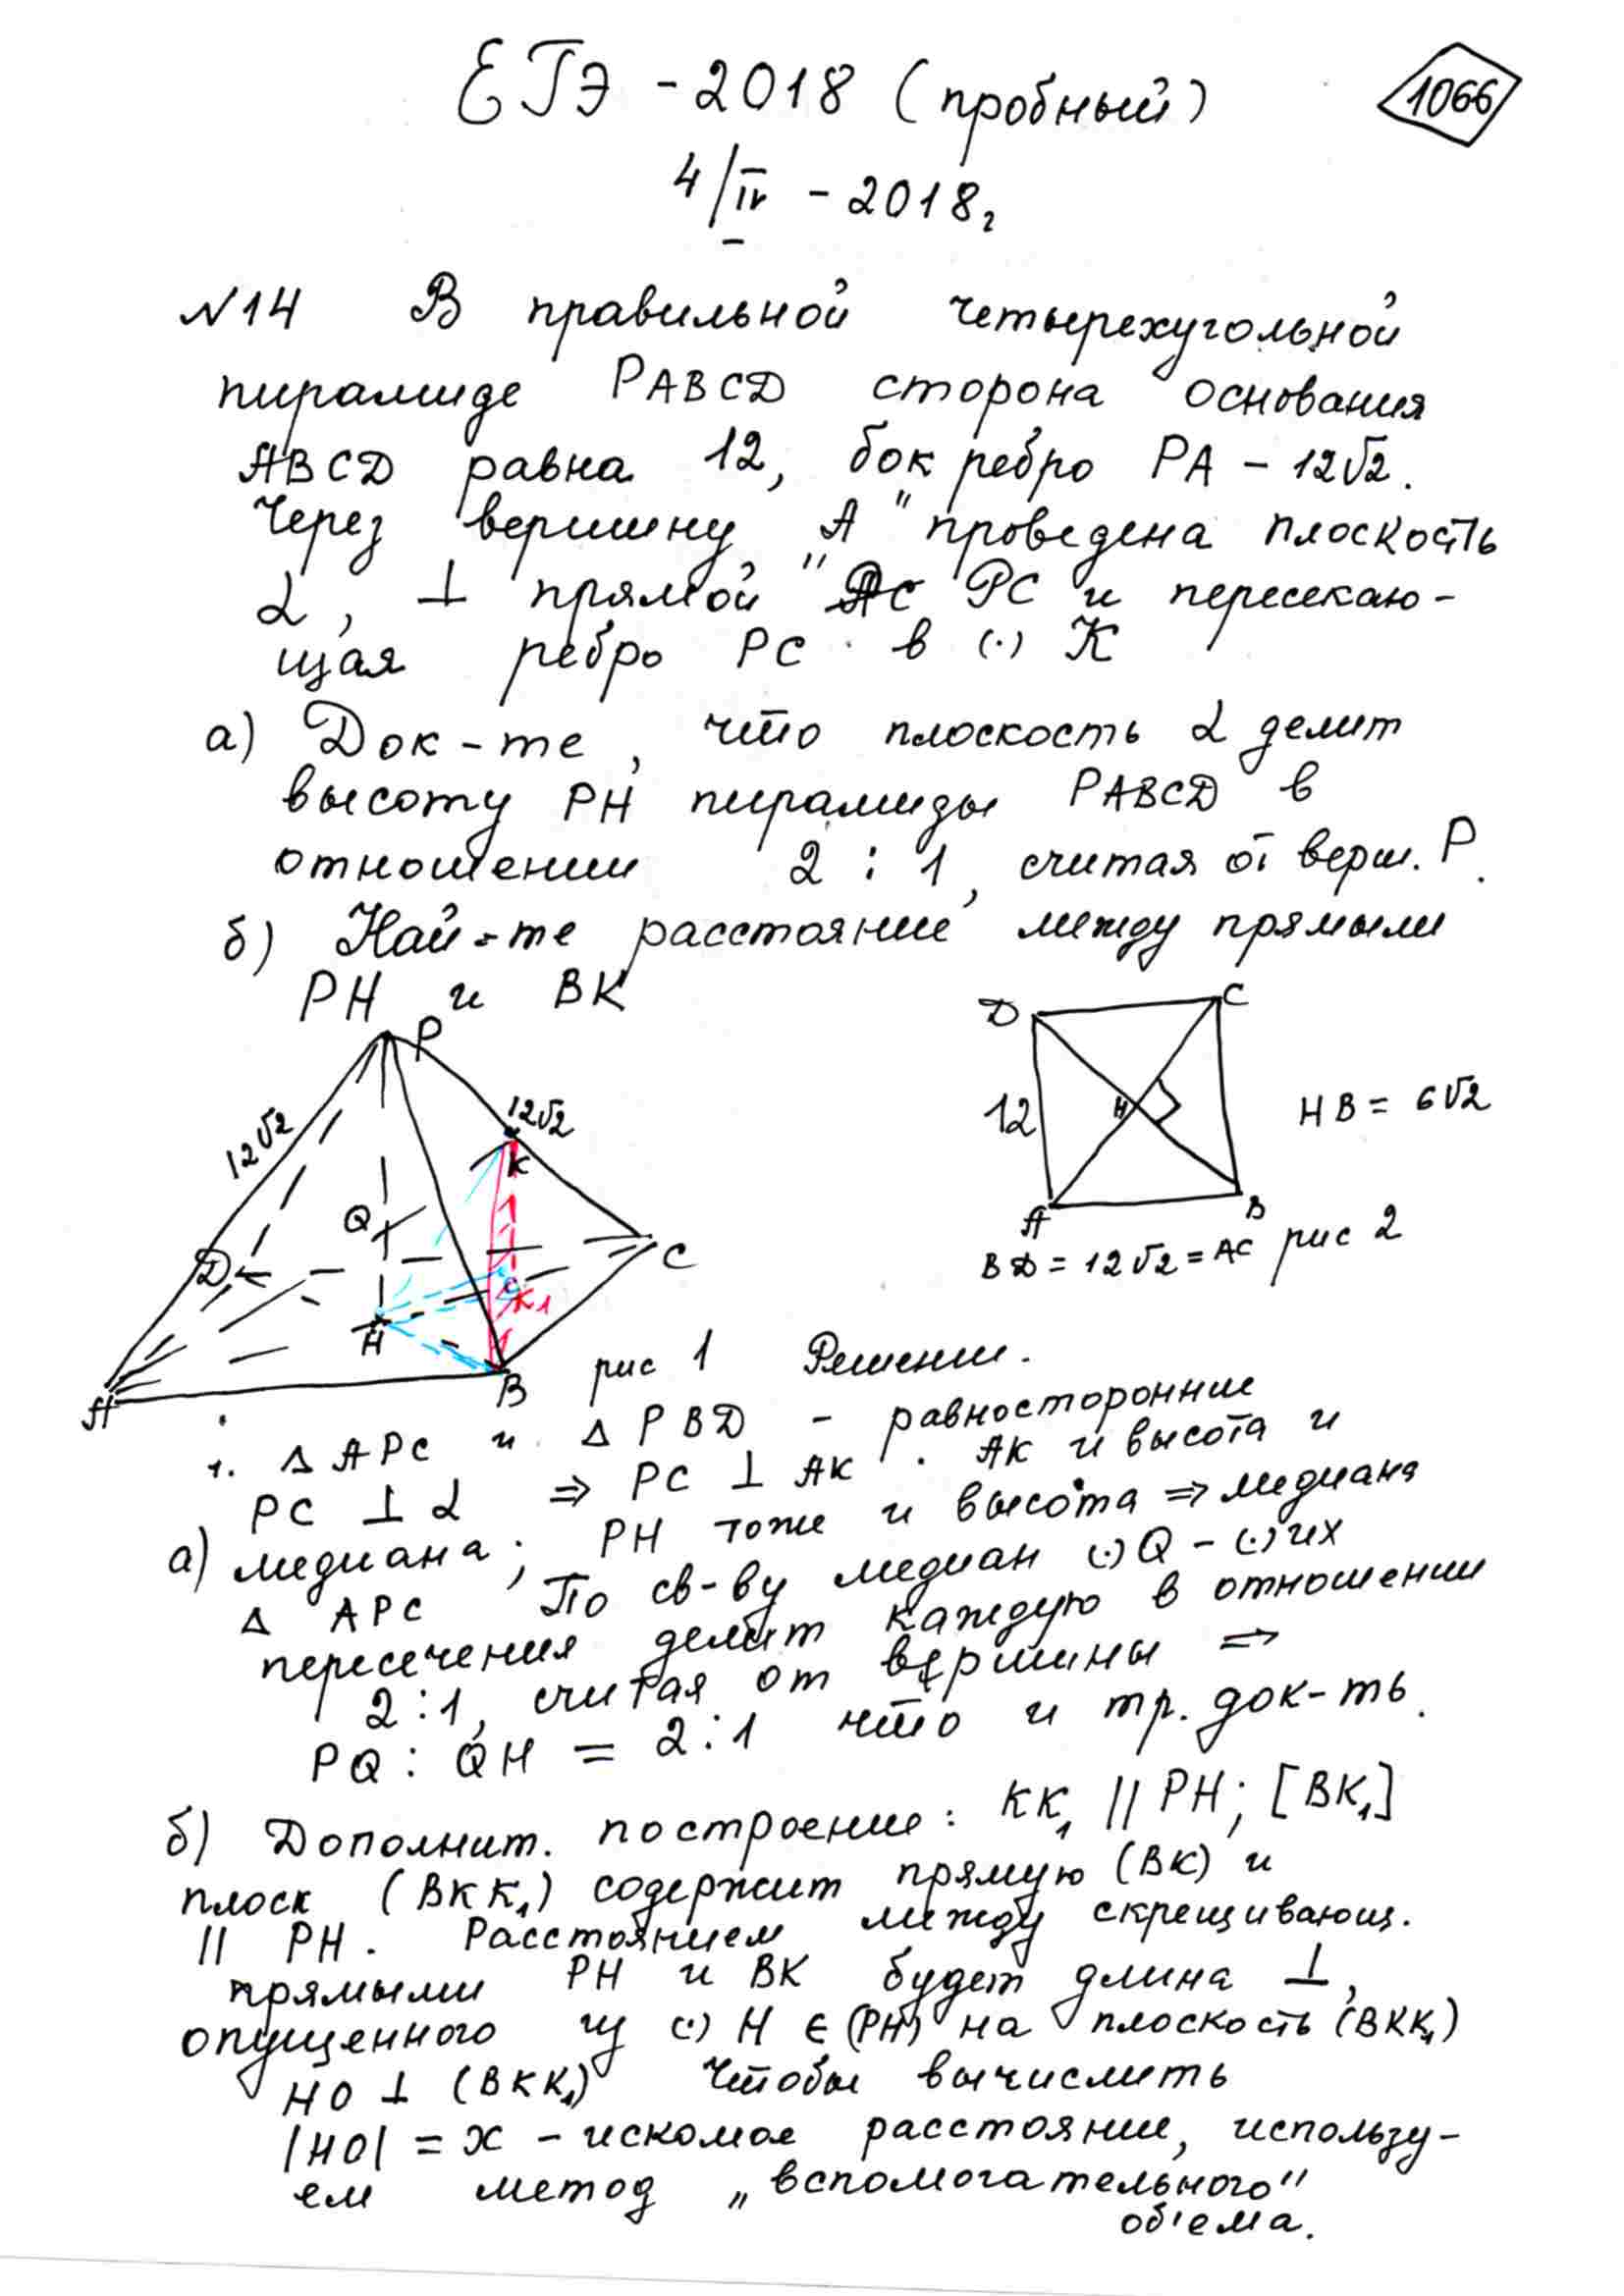 ЕГЭ - 2018 (пробный)
1066
4/IV - 2018г
N14 В правильной четырехугольной
пирамиде PABCD сторона основания
ABCD равна 12, бок ребро PA - 12√2.
Через вершину "A" проведена плоскость
α, ⊥ прямой PC и пересекаю-
щая ребро PC в (·) K
а) Док-те, что плоскость α делит
высоту PH пирамиды PABCD в
отношении 2 : 1, считая от верш. P.
б) Най-те расстояние между прямыми
PH и BK
P
12√2
12√2
K
Q
D
C
K₁
H
A
B
рис 1
D
C
12
H
HB = 6√2
A
B
BD = 12√2 = AC рис 2
Решение.
1. Δ APC и Δ PBD - равносторонние
PC ⊥ α ⇒ PC ⊥ AK . AK и высота и
а) медиана; PH тоже и высота ⇒ медиана
Δ APC По св-ву медиан (·) Q - (·) их
пересечения делит каждую в отношении
2:1, считая от вершины ⇒
PQ : QH = 2:1 что и тр. док-ть.
б) Дополнит. построение: KK₁ || PH; [BK₁]
плоск (BKK₁) содержит прямую (BK) и
|| PH. Расстоянием между скрещивающ.
прямыми PH и BK будет длина ⊥,
опущенного из (·) H ∈ (PH) на плоскость (BKK₁)
HO ⊥ (BKK₁) Чтобы вычислить
|HO| = x - искомое расстояние, использу-
ем метод „вспомогательного"
об'ема.